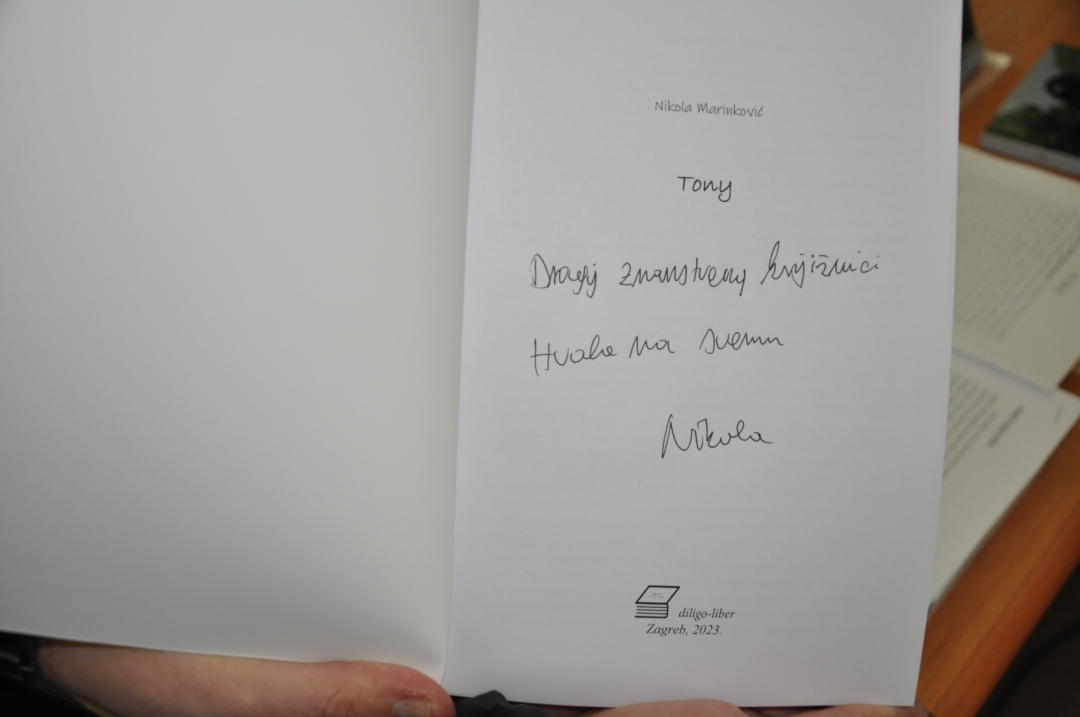 Nikola Marinković
Tony
Dragoj znanstvenoj knjižnici
Hvala na svemu
Nikola
diligo-liber
Zagreb, 2023.